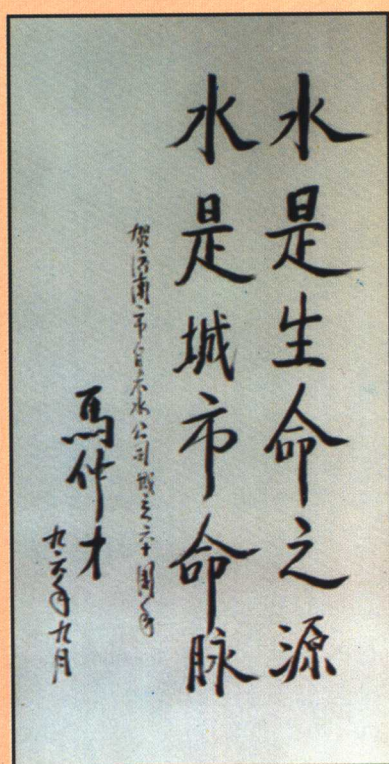 水是生命之源
水是城市命脉
贺济南市自来水公司成立六十周年
馬仲才
九六年九月